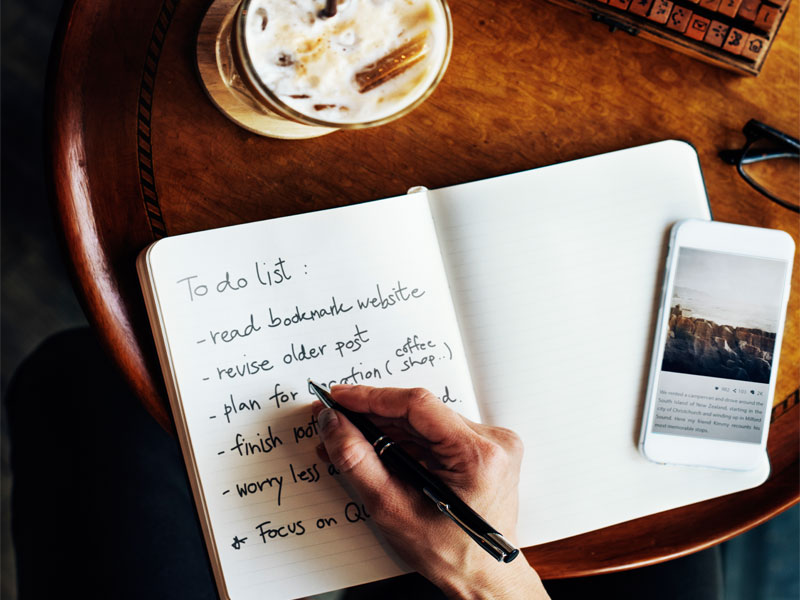 To do list :
- read bookmark website
- revise older post
- plan for vacation ( coffee shop.. )
- finish
- worry less
* Focus on
We rented a campervan and drove around the
South Island of New Zealand, starting in the
city of Christchurch and winding up in Milford
Sound. Here my friend Kimmy recounts his
most memorable stops.